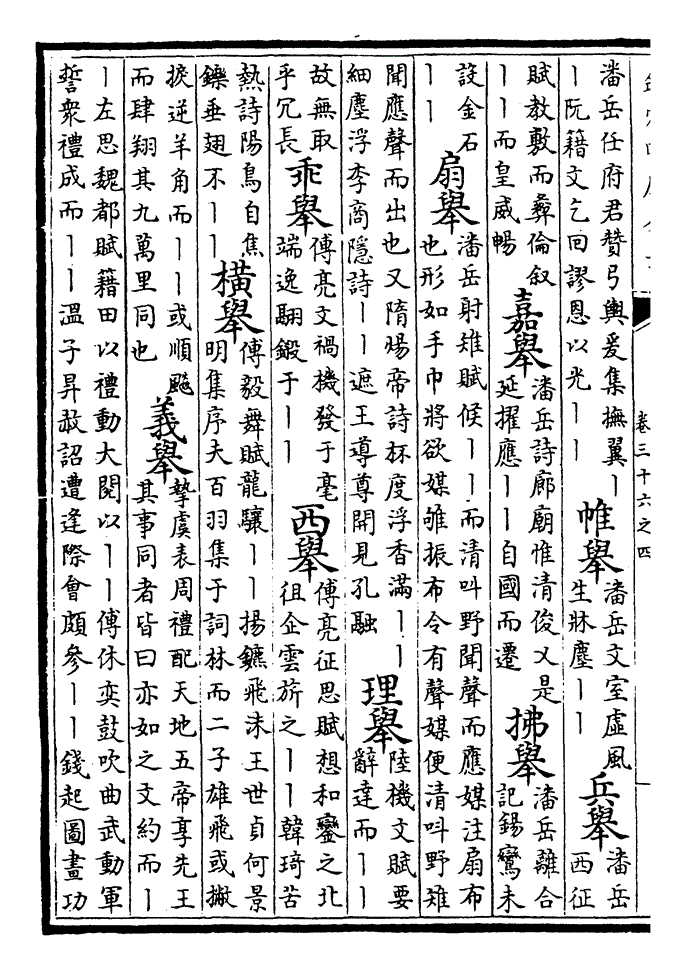 卷三十六之四
潘岳任府君贊弓輿爰集撫翼丨
丨阮籍文乞回謬恩以光丨丨
帷舉
潘岳文室虛風
生牀塵丨丨
兵舉
潘岳
西征
賦教敷而彝倫敘
丨丨而皇威暢
嘉舉
潘岳詩廊廟惟清俊乂是
延擢應丨丨自國而遷
拂舉
潘岳離合
記鍚鸞未
設金石
丨丨
扇舉
潘岳射雉賦候丨丨而清叫野聞聲而應媒注扇布
也形如手巾將欲媒雊振布令有聲媒便清叫野雉
聞應聲而出也又隋煬帝詩杯度浮香滿丨丨
細塵浮李商隱詩丨丨遮王導尊開見孔融
理舉
陸機文賦要
辭達而丨丨
故無取
乎冗長
乖舉
傅亮文禍機發于毫
端逸翮鍛于丨丨
西舉
傅亮征思賦想和鑾之北
徂企雲旂之丨丨韓琦苦
熱詩陽烏自焦
鑠垂翅不丨丨
橫舉
傅毅舞賦龍驤丨丨揚鑣飛沫王世貞何景
明集序夫百羽集于詞林而二子雄飛或撇
捩逆羊角而丨丨或順飈
而肆翔其九萬里同也
義舉
摯虞表周禮配天地五帝享先王
其事同者皆曰亦如之文約而丨
丨左思魏都賦藉田以禮動大閱以丨丨傅休奕鼓吹曲武動軍
誓衆禮成而丨丨溫子昇赦詔遭逢際會頗參丨丨錢起圖畫功